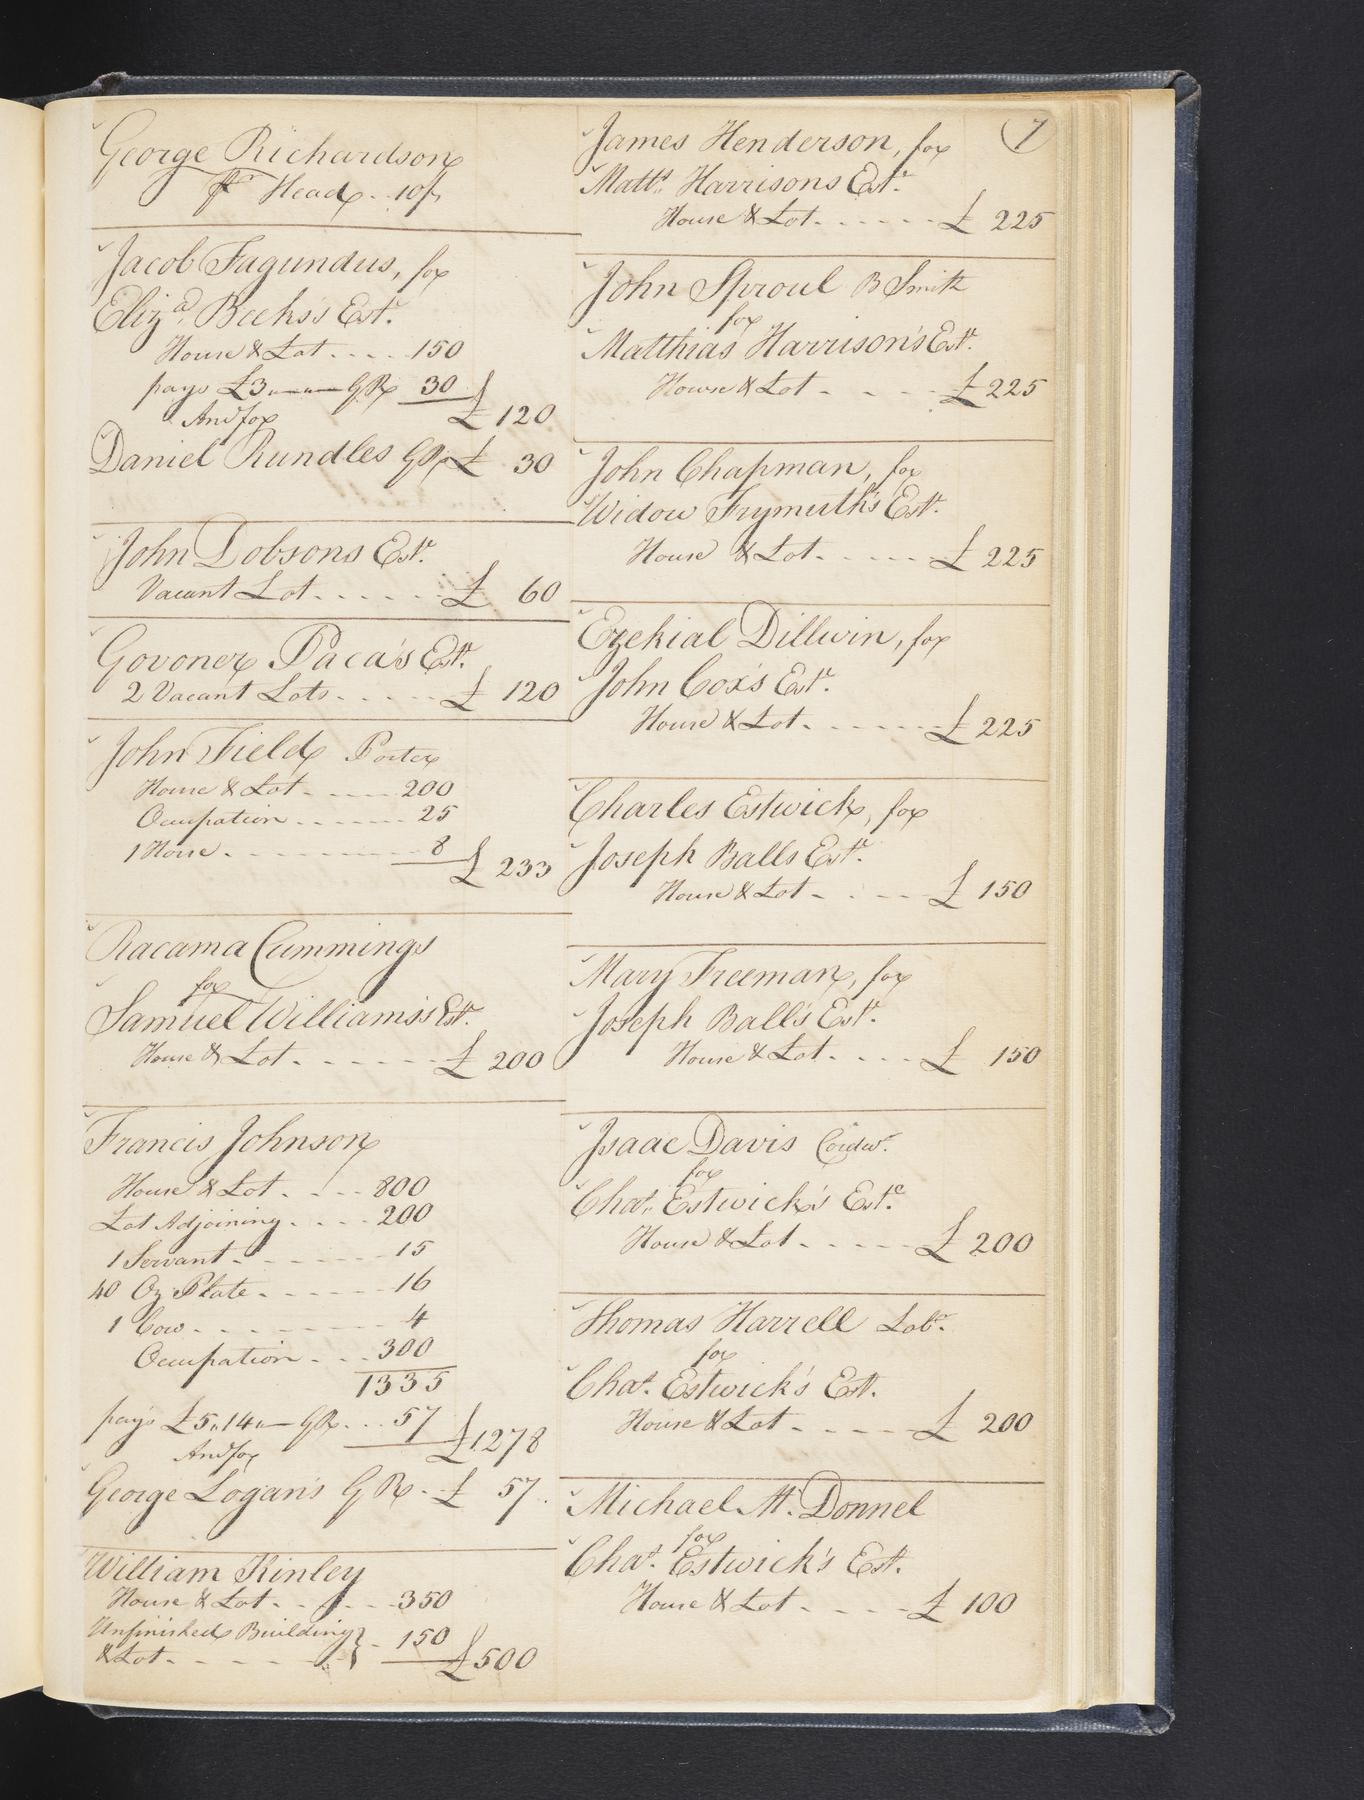 George Richardson
pr Head .. 10/
Jacob Fagundus, for
Eliza. Beeks's Estt.
House & Lot .... 150
pays £3 „ — „ — GRt 30
£ 120
And for
Daniel Rundles GRt £ 30
John Dobsons Estt.
Vacant Lot ...... £ 60
Govoner Paca's Estt.
2 Vacant Lots ..... £ 120
John Field Porter
House & Lot ..... 200
Occupation ....... 25
1 Horse .......... 8
£ 233
Racama Cummings
for
Samuel Williams's Estt.
House & Lot ...... £ 200
Francis Johnson
House & Lot .... 800
Lot Adjoining .... 200
1 Servant ....... 15
40 Oz Plate ...... 16
1 Cow ......... 4
Occupation ... 300
1335
pays £5 „ 14 „ — GR ... 57
£1278
And for
George Logan's GR .. £ 57.
William Kinley
House & Lot ..... 350
Unfinished Building } . 150
& Lot ......
£500
7
James Henderson, for
Mattw. Harrisons Estt.
House & Lot ...... £ 225
John Sproul B Smith
for
Matthias Harrison's Estt.
House & Lot .... £225
John Chapman, for
Widow Frymuth's Estt.
House & Lot ..... £ 225
Ezekial Dillwin, for
John Cox's Estt.
House & Lot ..... £ 225
Charles Estwick, for
Joseph Balls Estt.
House & Lot .... £ 150
Mary Freeman, for
Joseph Ball's Estt.
House & Lot .... £ 150
Isaac Davis Cordwr.
for
Chas. Estwick's Este.
House & Lot ..... £ 200
Thomas Harrell Labr.
for
Chas. Estwick's Estt.
House & Lot ..... £ 200
Michael Mc. Donnel
for
Chas. Estwick's Estt.
House & Lot .... £ 100